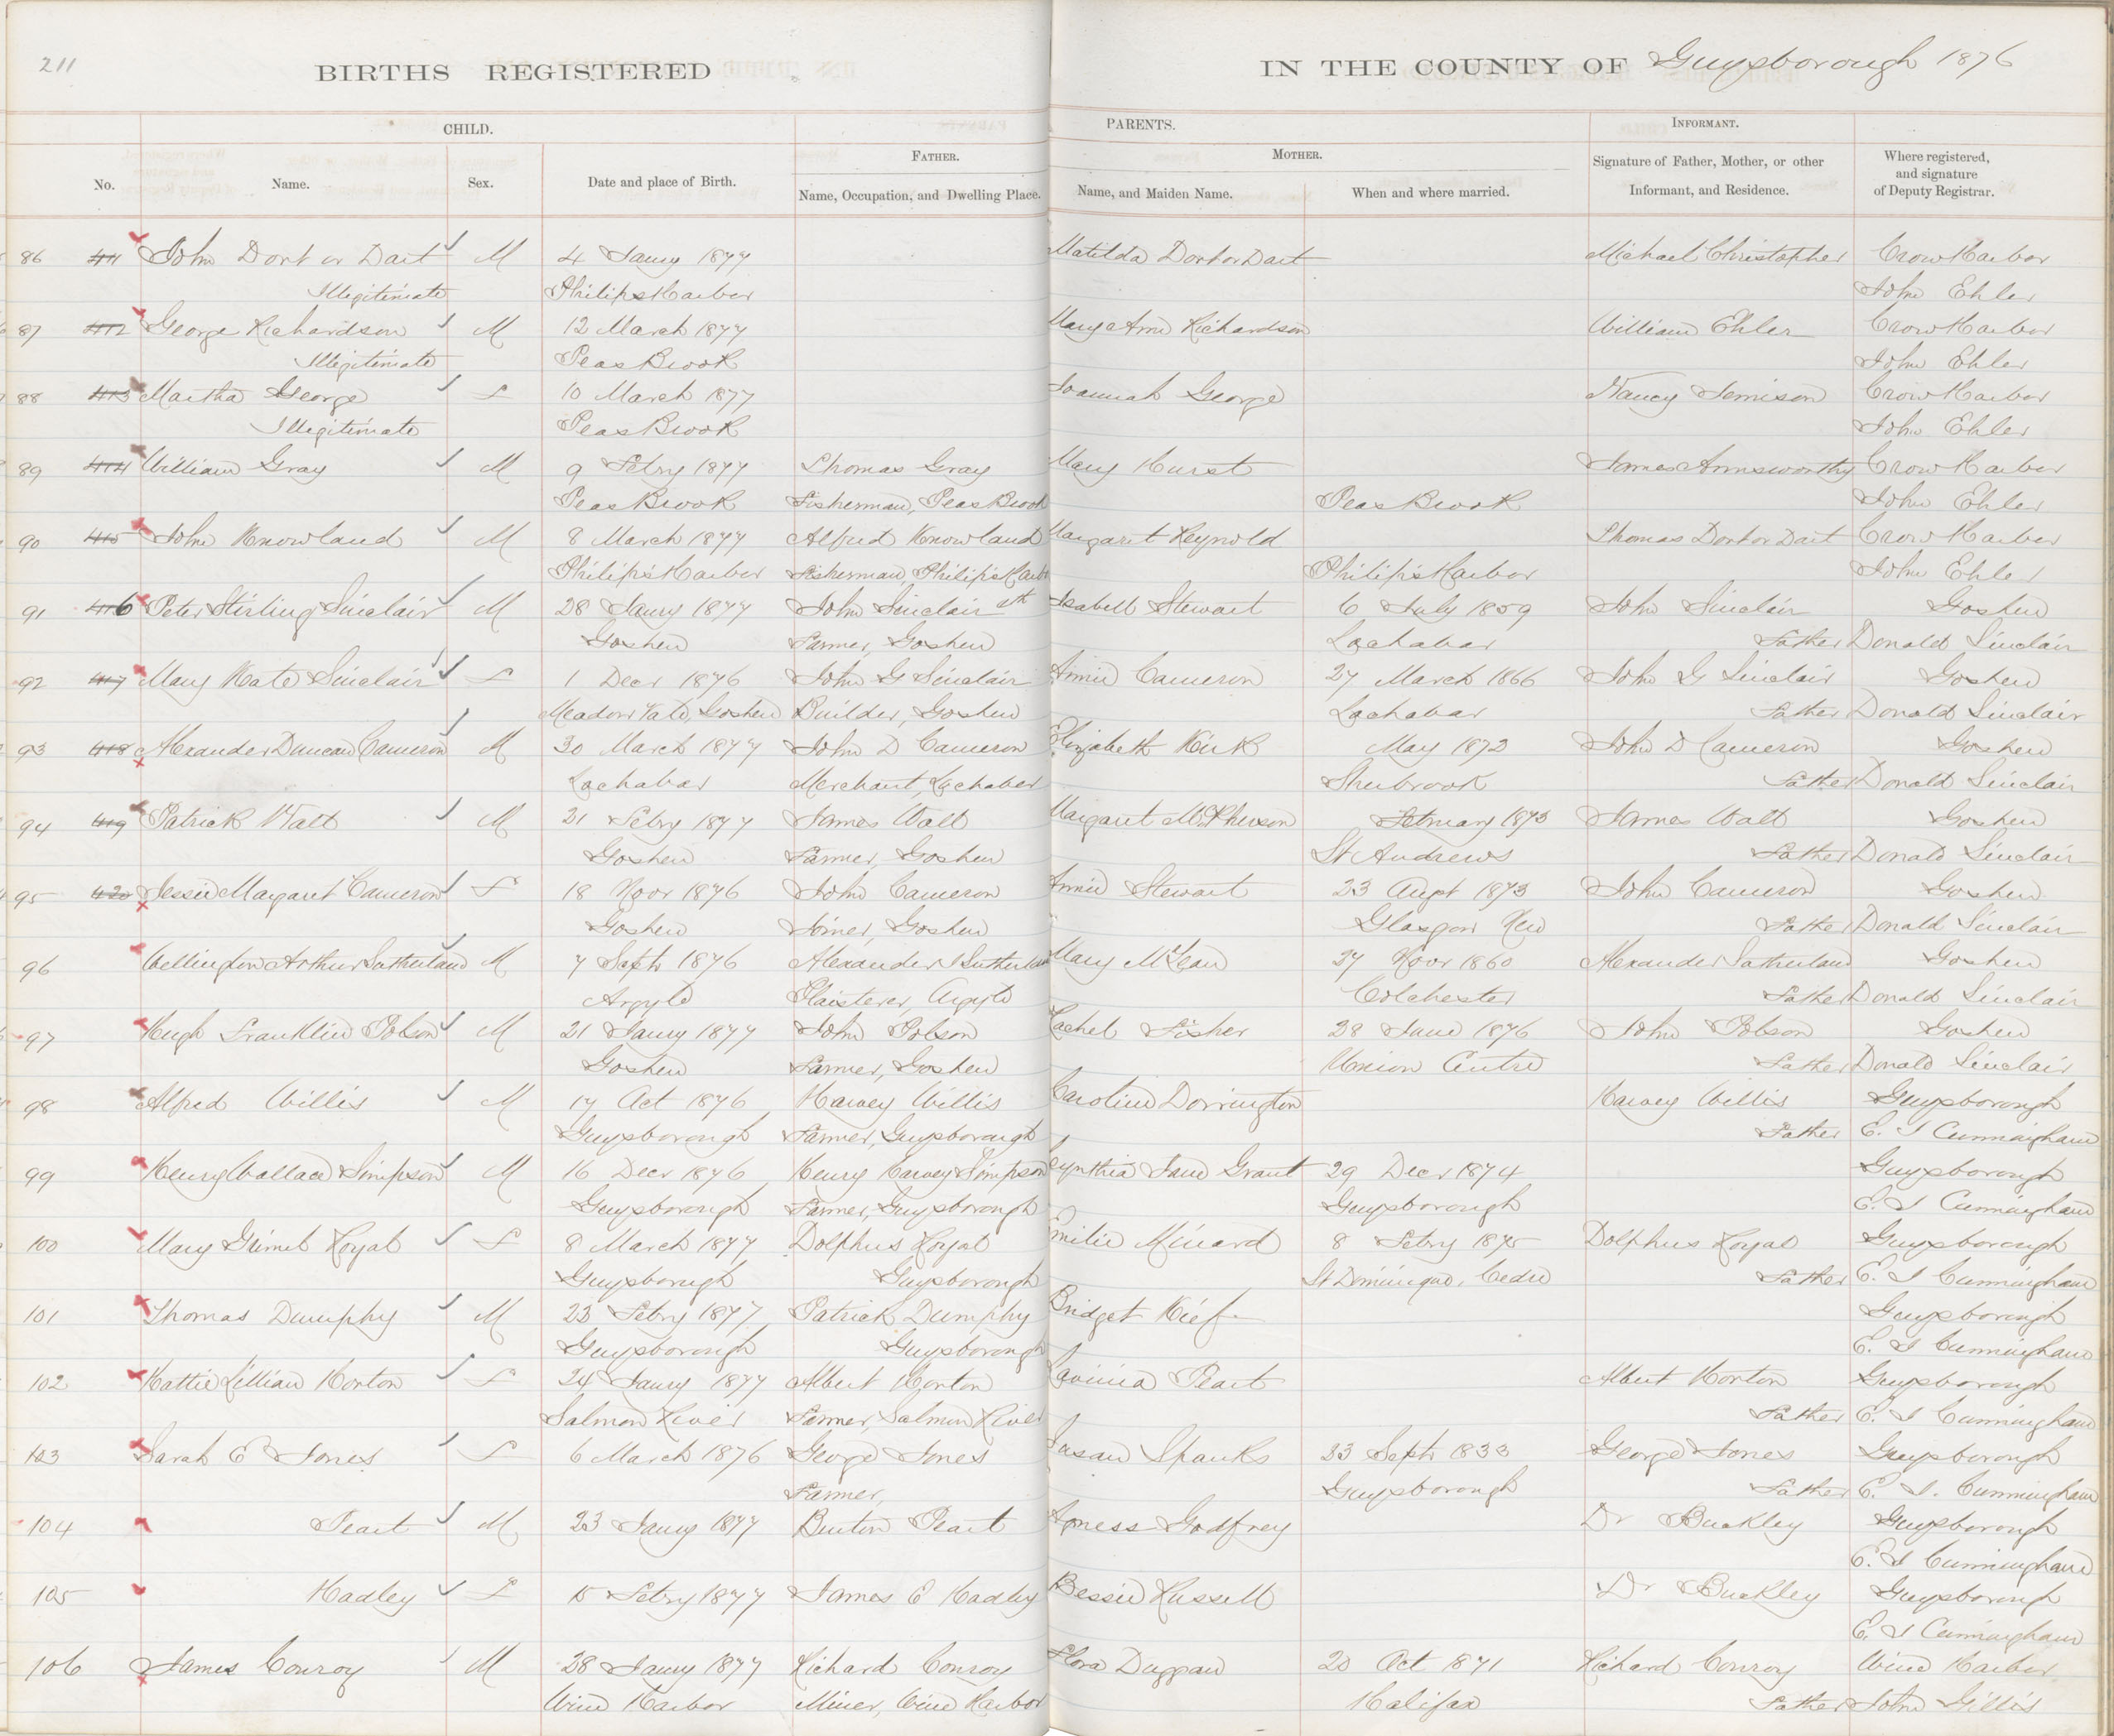 211
BIRTHS REGISTERED IN THE COUNTY OF Guysborough 1876
CHILD. PARENTS. INFORMANT.
FATHER. MOTHER.
No. Name. Sex. Date and place of Birth. Name, Occupation, and Dwelling Place. Name, and Maiden Name. When and where married. Signature of Father, Mother, or other Informant, and Residence. Where registered, and signature of Deputy Registrar.
86 411 John Dort or Dart M 4 Jany 1877 Matilda Dort or Dart Michael Christopher Crow Harbor
Illegitimate Philips Harbor John Ehler
87 412 George Richardson M 12 March 1877 Mary Ann Richardson William Ehler Crow Harbor
Illegitimate Peas Brook John Ehler
88 413 Martha George F 10 March 1877 Joannah George Nancy Jemison Crow Harbor
Illegitimate Peas Brook John Ehler
89 414 William Gray M 9 Febry 1877 Thomas Gray Mary Hurst James Armsworthy Crow Harbor
Peas Brook Fisherman, Peas Brook Peas Brook John Ehler
90 415 John Knowland M 8 March 1877 Alfred Knowland Margaret Reynold Thomas Dort or Dart Crow Harbor
Philip's Harbor Fisherman, Philip's Harbor Philip's Harbor John Ehler
91 416 Peter Stirling Sinclair M 28 Jany 1877 John Sinclair 4th Isabell Stewart 6 July 1859 John Sinclair Goshen
Goshen Farmer, Goshen Lochabar Father Donald Sinclair
92 417 Mary Kate Sinclair F 1 Decr 1876 John G Sinclair Annie Cameron 27 March 1866 John G Sinclair Goshen
Meadow Vale, Goshen Builder, Goshen Lochabar Father Donald Sinclair
93 418 Alexander Duncan Cameron M 30 March 1877 John D Cameron Elizabeth Kirk May 1872 John D Cameron Goshen
Lochabar Merchant, Lochaber Sherbrook Father Donald Sinclair
94 419 Patrick Watt M 21 Febry 1877 James Watt Margaret McPherson February 1873 James Watt Goshen
Goshen Farmer, Goshen St Andrews Father Donald Sinclair
95 420 Jessie Margaret Cameron F 18 Novr 1876 John Cameron Annie Stewart 23 Augt 1873 John Cameron Goshen
Goshen Joiner, Goshen Glasgow New Father Donald Sinclair
96 Wellington Arthur Sutherland M 7 Septr 1876 Alexander J Sutherland Mary McLean 27 Novr 1860 Alexander Sutherland Goshen
Argyle Plaisterer, Argyle Colchester Father Donald Sinclair
97 Hugh Franklin Polson M 21 Jany 1877 John Polson Rachel Fisher 28 June 1876 John Polson Goshen
Goshen Farmer, Goshen Union Centre Father Donald Sinclair
98 Alfred Willis M 17 Oct 1876 Harvey Willis Caroline Dorrington Harvey Willis Guysborough
Guysborough Farmer, Guysborough Father E. J Cunningham
99 Henry Wallace Simpson M 16 Decr 1876 Henry Harvey Simpson Cynthia Jane Grant 29 Decr 1874 Guysborough
Guysborough Farmer, Guysborough Guysborough E. J Cunningham
100 Mary Grimet Royal F 8 March 1877 Dolphus Royal Emilie Minard 8 Febry 1875 Dolphus Royal Guysborough
Guysborough Guysborough St Dominque, Cedre Father E. J Cunningham
101 Thomas Dumphy M 23 Febry 1877 Patrick Dumphy Bridget Kief Guysborough
Guysborough Guysborough E. J Cunningham
102 Hattie Lillian Horton F 24 Jany 1877 Albert Horton Lavinia Peart Albert Horton Guysborough
Salmon River Farmer, Salmon River Father E. J Cunningham
103 Sarah E Jones F 6 March 1876 George Jones Susan Shanks 23 Septr 1833 George Jones Guysborough
Farmer, Guysborough Father E. J. Cunningham
104 Peart M 23 Jany 1877 Burton Peart Agness Godfrey Dr Buckley Guysborough
E. J Cunningham
105 Hadley F 15 Febry 1877 James E Hadley Bessie Russell Dr Buckley Guysborough
E. J Cunningham
106 James Conroy M 28 Jany 1877 Richard Conroy Flora Duggan 20 Oct 1871 Richard Conroy Wine Harbor
Wine Harbor Miner, Wine Harbor Halifax Father John Gillis